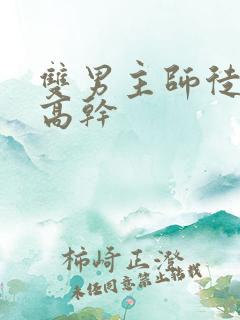 雙男主師徒
高幹
柿崎正澄
未经同意禁止转载